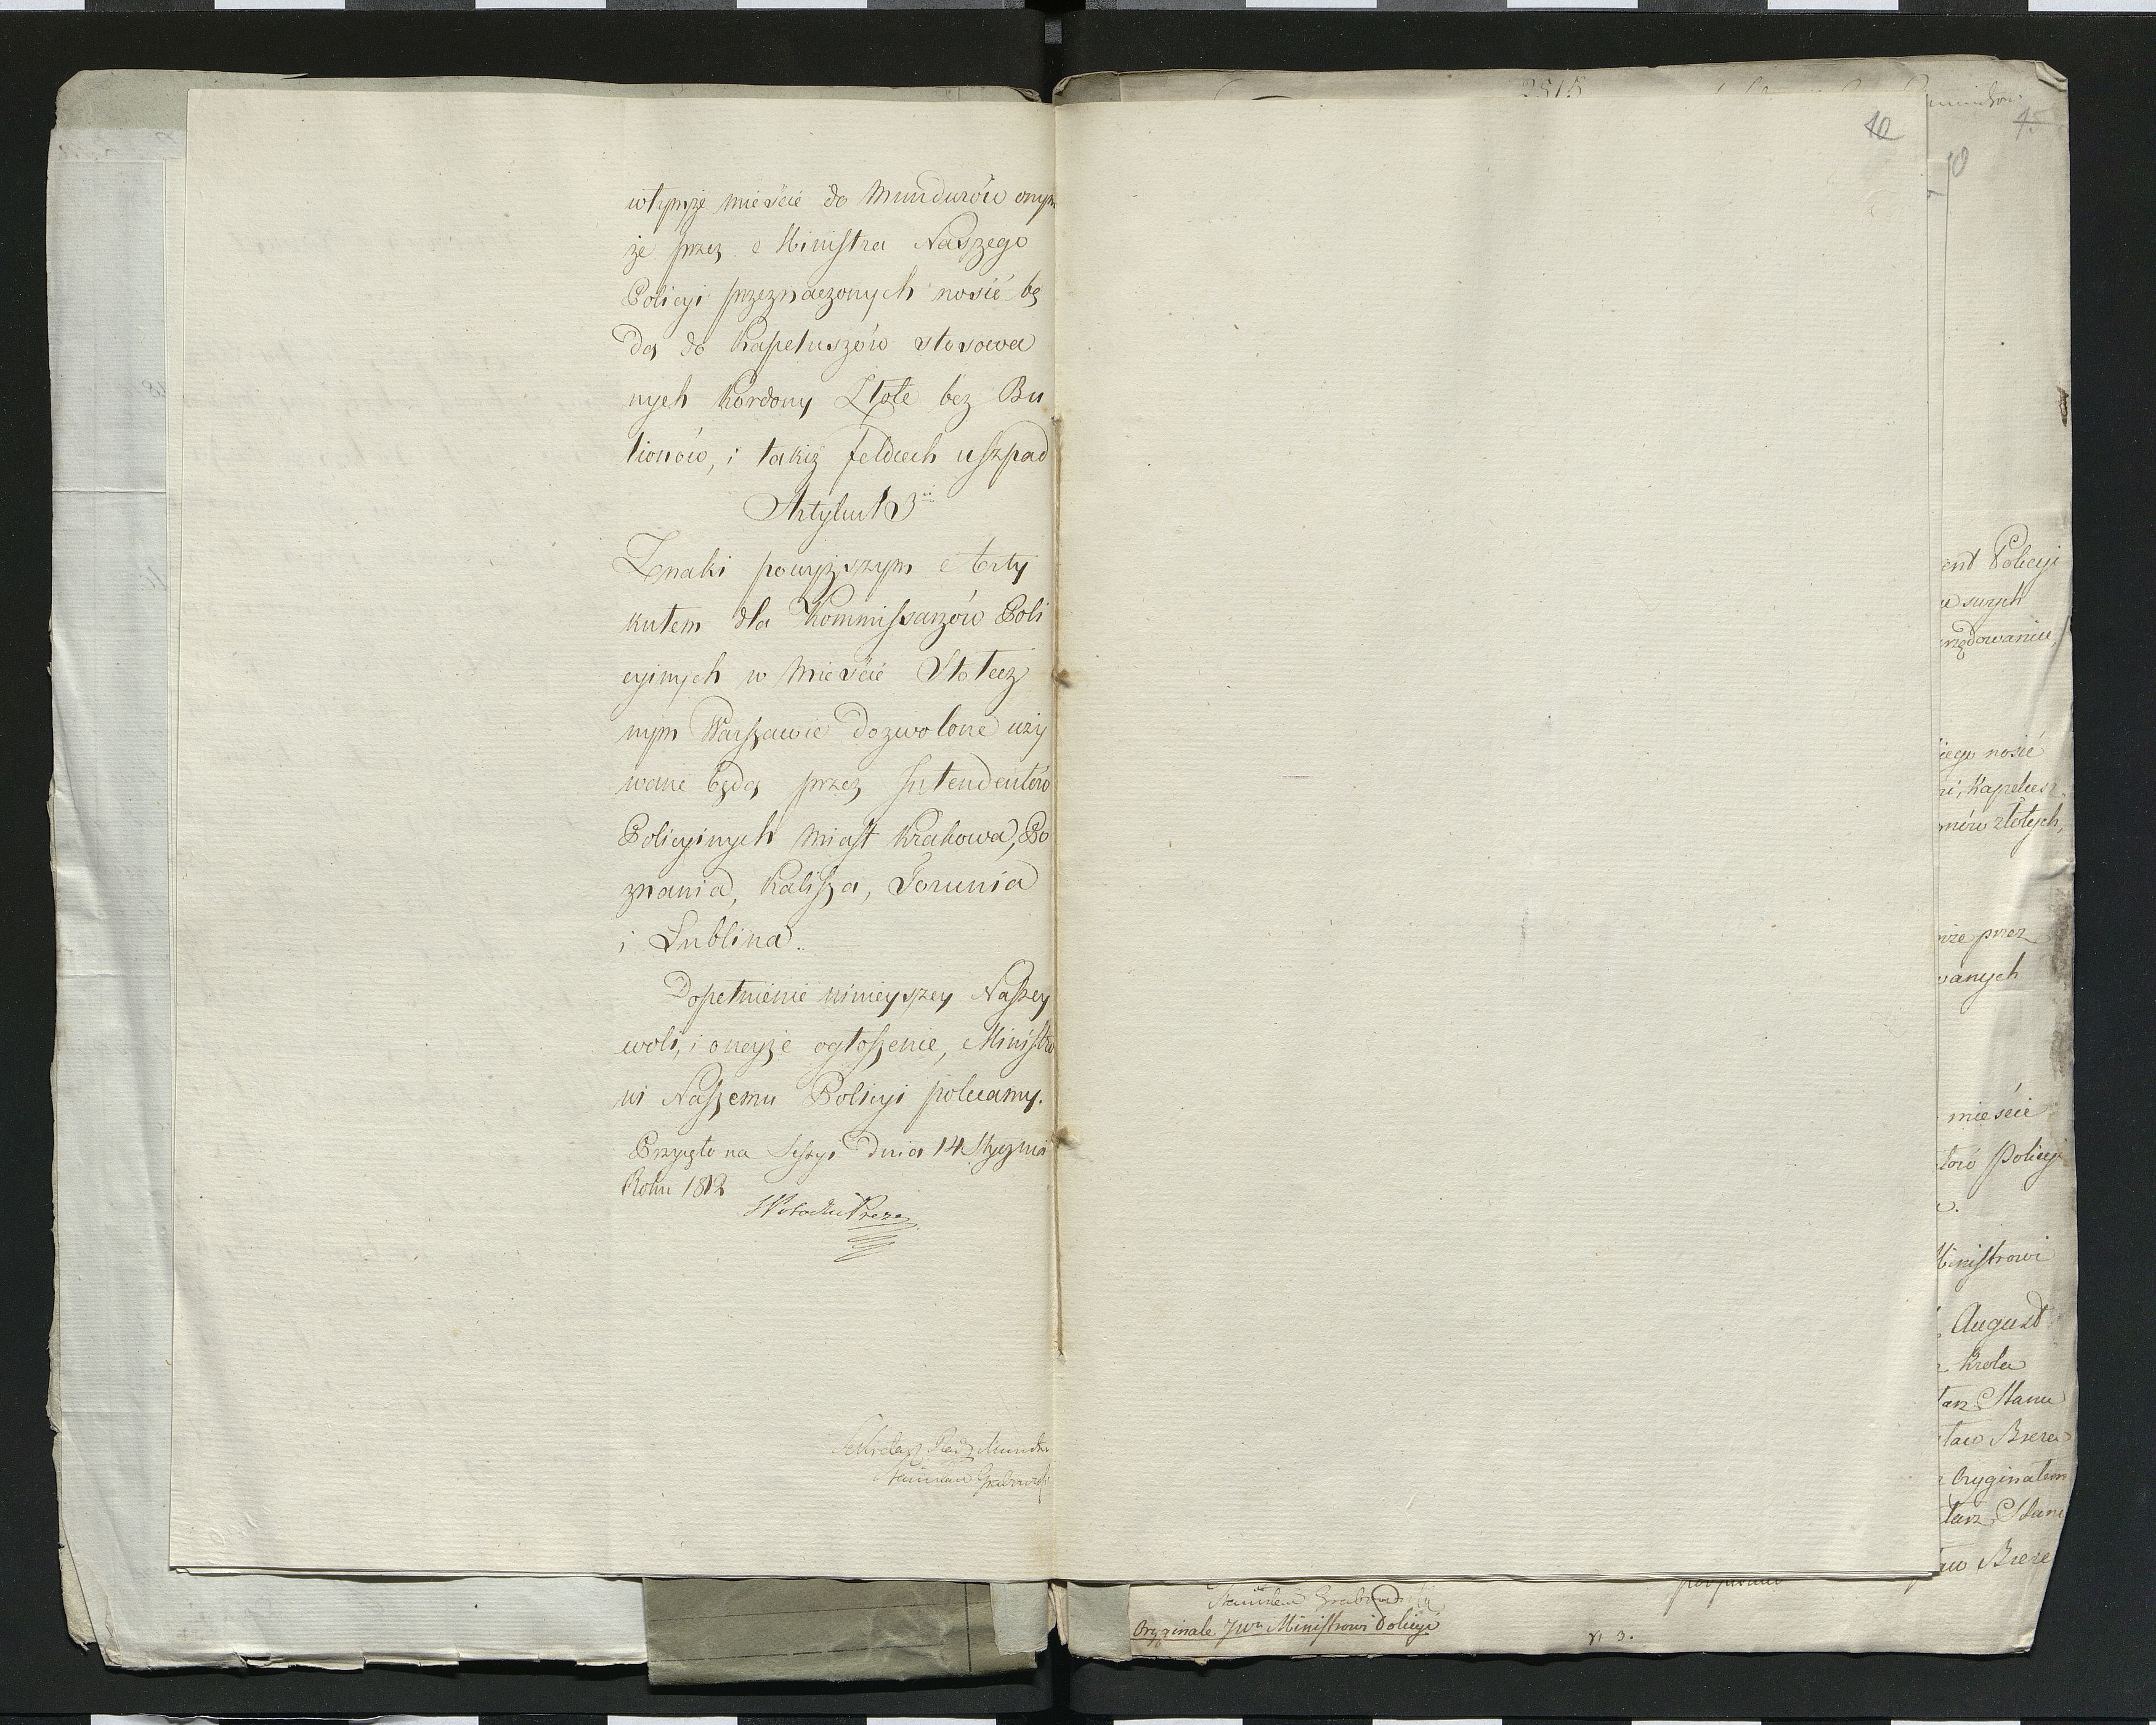 wtymże mieście do Mundurów onym
że przez Ministra Naszego
Policyi przeznaczonych nosić bę
dą do Kapeluszów stosowa
nych Kordony Złote bez Bu
lionów, i takiż feldcech u szpad
Artykuł 3ci
Znaki powyższym Arty
kułem dla Kommissarzów Poli
cyinych w Mieście Stołecz
nym Warszawie dozwolone uży
wane będą przez Intendentów
Policyinych Miast Krakowa, Po
znania, Kalisza, Torunia
i Lublina.
Dopełnienie ninieyszey Naszey
woli, i oneyże ogłoszenie, Ministro
wi Naszemu Policyi polecamy.
Przyięto na Sessyi Dnia 14 Stycznia
Roku 1812
Sekretarz Rady Ministrów
Stanisław Grabowski
2515
10
15
10
ent Policyi
swych
rzędowaniu,
iego nosić
ni, Kapelusz
nów złotych,
że przez
wanych
mieście
tów Policyi
Ministrowi
August
Króla
tarz Stanu
ław Breza
Oryginałem
tarz Stanu
ław Breza
Stanisław Grabowski
Oryginale JWu Ministrowi Policyi
N 3.